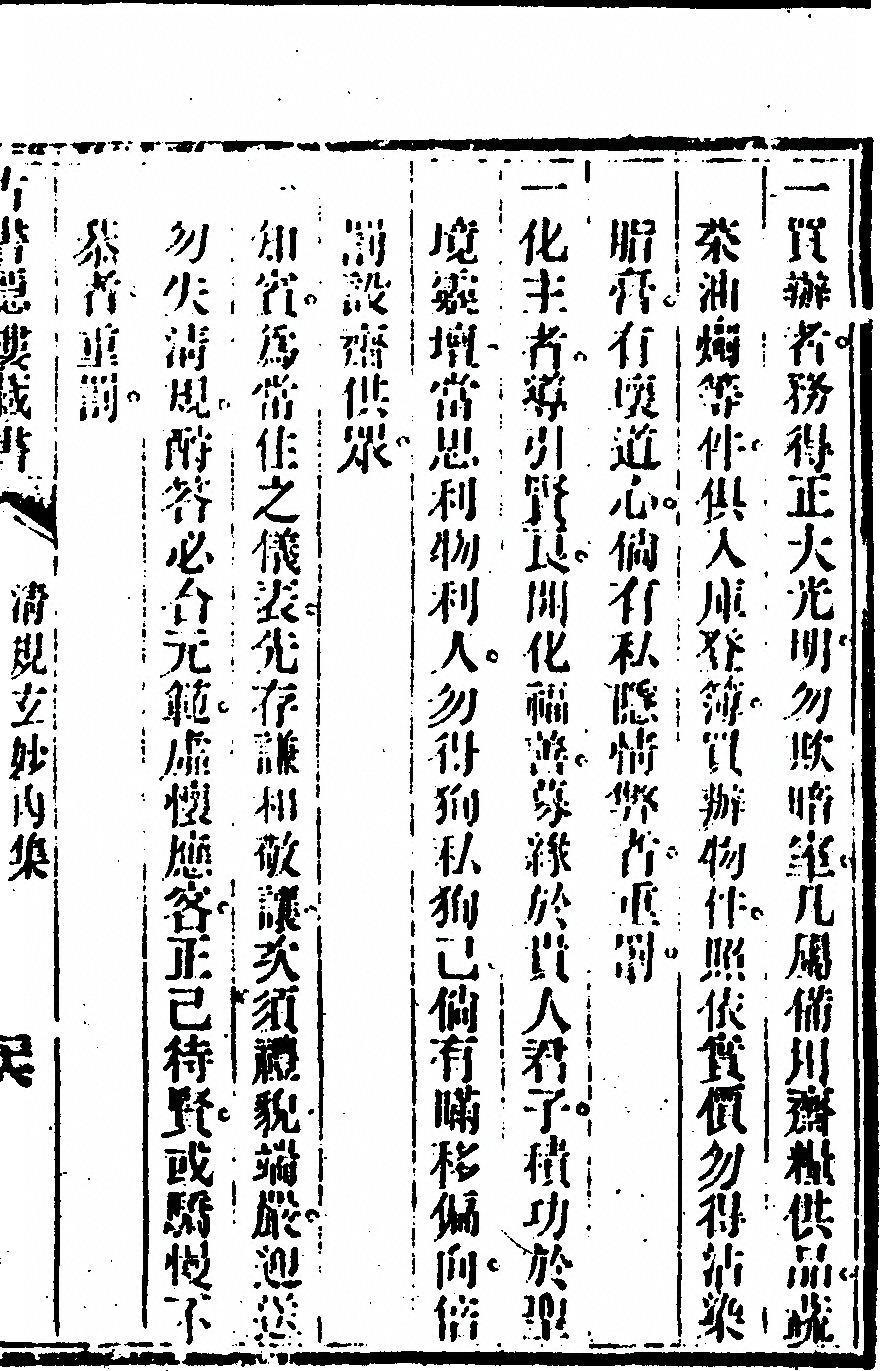 一買辦者務得正大光明勿欺暗室凡周備用齋粮供品蔬
菜油燭等件俱入庫登簿買辦物件照依實價勿得沾染
脂膏有壞道心倘有私隱情弊者重罰
一化主者導引賢良開化福善募緣於貴人君子積功於聖
境靈壇當思利物利人勿得狥私狥己倘有瞞移偏向倍
罰設齋供眾
一知客爲常住之儀表先存謙和敬讓次須禮貌端嚴迎送
勿失清規酧答必合元範虛懷應客正己待賢或驕慢不
恭者重罰
古書隱樓藏書
清規玄妙內集